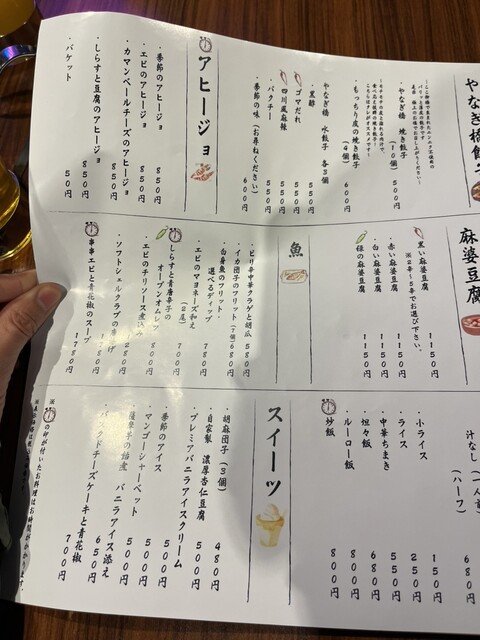 やなぎ橋餃
・やなぎ橋 焼き餃子
(10個) 500円
・もっちり皮の焼き餃子
(4個) 600円
やなぎ橋 水餃子 各3個
・黒酢 550円
・ゴマだれ 550円
・四川風麻辣 550円
・パクチー 550円
・季節の味(お尋ねください) 600円
アヒージョ
・季節のアヒージョ 850円
・エビのアヒージョ 850円
・カマンベールチーズのアヒージョ 850円
・しらすと豆腐のアヒージョ 850円
・バケット 50円
麻婆豆腐
・黒い麻婆豆腐 1150円
※2辛〜5辛でお選び下さい。
・赤い麻婆豆腐 1150円
・白い麻婆豆腐 1150円
・緑の麻婆豆腐 1150円
魚
・ピリ辛中華クラゲと胡瓜 580円
・イカ団子のフリット(1個) 680円
・白身魚のフリット・
選べるディップ 780円
・エビのマヨネーズ和え 700円
・しらすと青唐辛子の
オーブンオムレツ
・エビのチリソース煮込み
・ソフトシェルクラブの
・串串エビと青花椒のスープ 1780円
汁なし(一人前)
(ハーフ) 680
・小ライス 150円
・ライス 250円
・中華ちまき 550円
・坦々飯 680円
・ルーロー飯 800円
・炒飯 800円
スイーツ
・胡麻団子(3個) 480円
・自家製 濃厚杏仁豆腐 500円
・プレミアバニラアイスクリーム 500円
・季節のアイス 500円
・マンゴーシャーベット 500円
バニラアイス添え 650円
バスクドチーズケーキと青花椒 700円
※の印が付いたお料理はお時間がかかります。